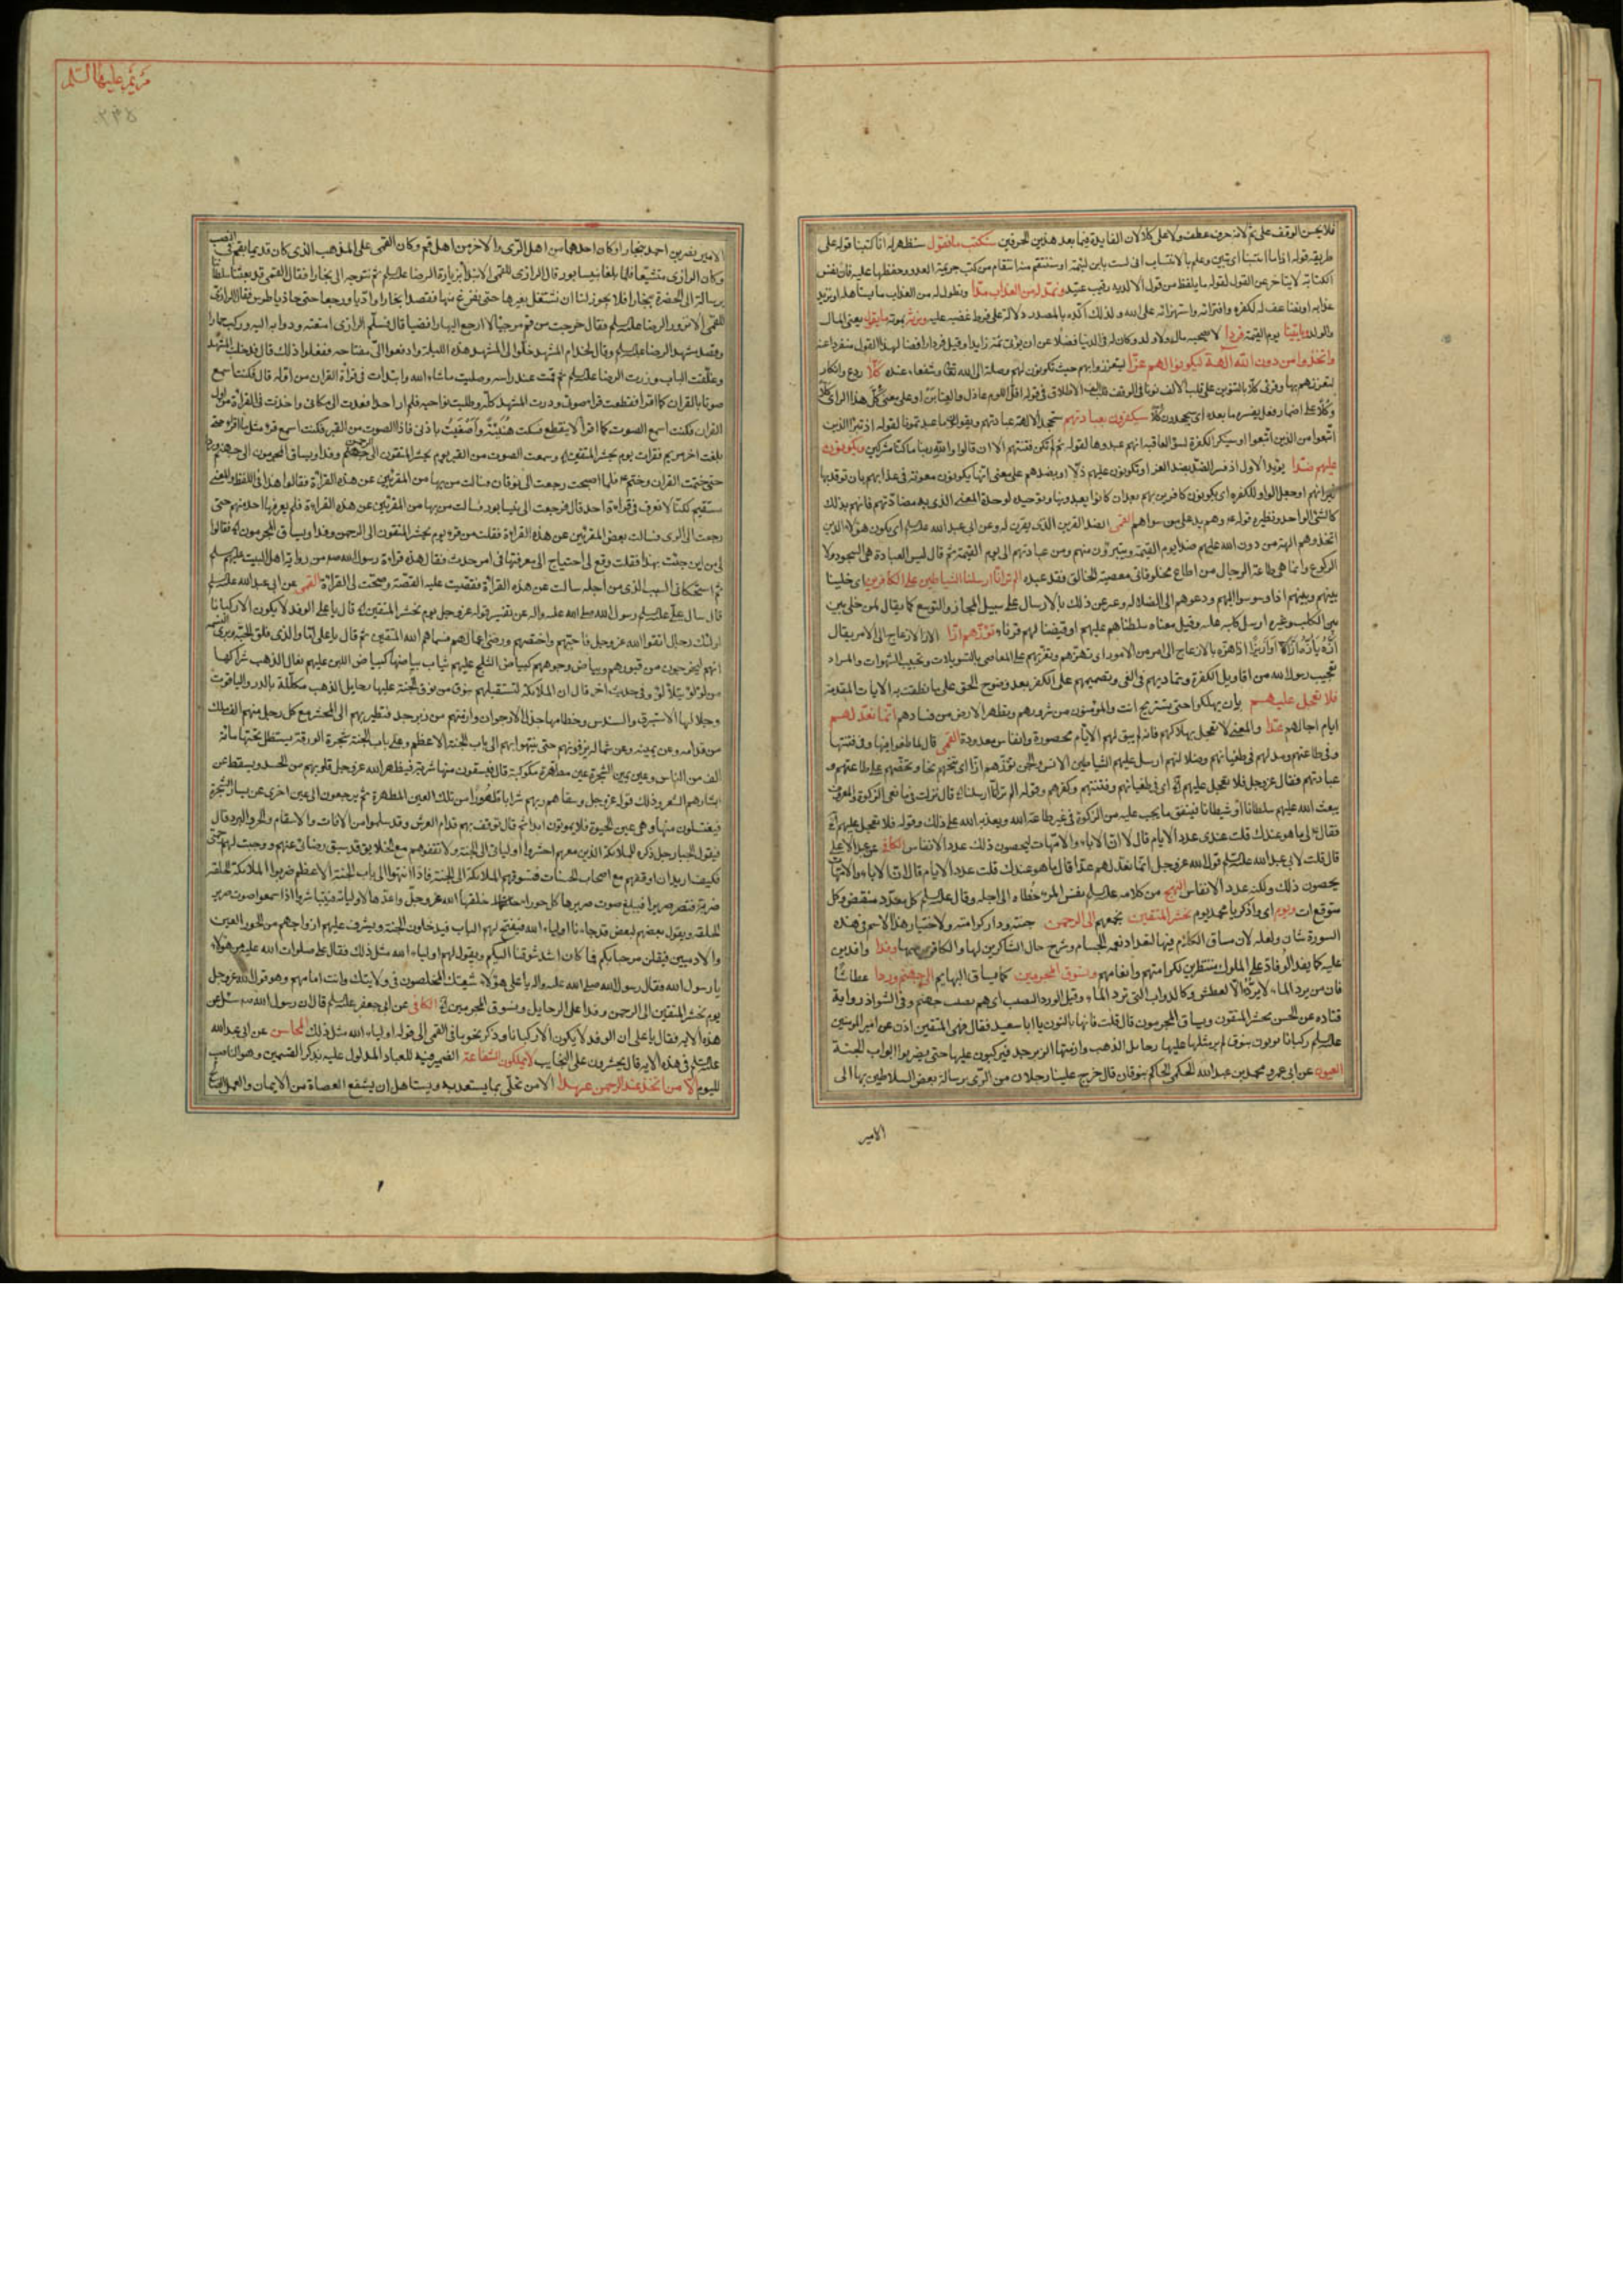 فلا يحسن الوقف على ثم لانه حرف عطف ولا على كلا لان الفايدة فيما بعد هذين الحرفين سنكتب ما يقول سنظهر له انا كتبنا قوله على
طريقه قوله اذا ما انتسبنا لم تلدني لئيمة او سننتقم منه انتقام من كتب جريمة العدو وحفظها عليه فان نفس
الكتابة لا يتاخر عن القول لقوله ما يلفظ من قول الا لديه رقيب عتيد ونمد له من العذاب مدا ونطول له من العذاب ما يستاهله او نزيد
عذابه ونضاعف له لكفره وافترائه واستهزائه على الله ولذلك اكده بالمصدر دلالة على فرط غضبه عليه ونرثه بموته ما يقول يعني المال
والولد وياتينا يوم القيمة فردا لا يصحبه مال ولا ولد كان له في الدنيا فضلا عن ان يؤتى ثمة زايدا وقيل فردا رافضا لهذا القول منفردا عنه
واتخذوا من دون الله الهة ليكونوا لهم عزا ليتعززوا بهم حيث يكونون لهم وصلة الى الله وشفعاء عنده كلا ردع وانكار
لتعززهم بها وقرئ كلا بالتنوين على قلب الالف نونا في الوقف
سيكفرون بعبادتهم ستجحد الالهة عبادتهم ويقولون ما عبدتمونا لقوله اذ تبرا الذين
اتبعوا من الذين اتبعوا او سينكر الكفرة لسوء العاقبة انهم عبدوها لقوله ثم لم تكن فتنتهم الا ان قالوا والله ربنا ما كنا مشركين ويكونون
عليهم ضدا يؤيد الاول اذ فسر الضد بضد العز اي ويكونون عليهم ذلا او بضدهم على معنى انها يكون معونة في عذابهم بان توقد بها
نيرانهم او جعل الواو للكفرة اي يكونون كافرين بهم بعد ان كانوا يعبدونها وتوحيده لوحدة المعنى الذي به مضادتهم فانهم بذلك
كالشئ الواحد ونظيره قوله وهم يد على من سواهم القمي
اتخذوهم الهة من دون الله عليهم ضدا يوم القيمة ويتبرؤن منهم ومن عبادتهم الى يوم القيمة ثم قال ليس العبادة هي السجود ولا
الركوع وانما هي طاعة الرجال من اطاع مخلوقا في معصية الخالق فقد عبده الم تر انا ارسلنا الشياطين على الكافرين اي خلينا
بينهم وبينهم اذا وسوسوا اليهم ودعوهم الى الضلالة وعبر عن ذلك بالارسال على سبيل المجاز والتوسع كما يقال لمن خلى بين
وقيل معناه سلطناهم عليهم او قيضنا لهم قرناء تؤزهم ازا الاز الازعاج الى الامر يقال
بالازعاج الى امر من الامور او تهزهم وتغريهم على المعاصي بالتسويلات وتحبيب الشهوات والمراد
تعجيب رسول الله من اقاويل الكفرة وتماديهم في الغي وتصميمهم على الكفر بعد وضوح الحق على ما نطقت به الايات المقدمة
فلا تعجل عليهم بان يهلكوا حتى يستريح انت والمؤمنون من شرورهم ويطهر الارض من فسادهم انما نعد لهم
ايام اجالهم عدا والمعنى لا تعجل بهلاكهم فانه لم يبق لهم الا ايام محصورة وانفاس معدودة القمي قال لما طغوا فيها وفي فتنتها
وفي طاعتهم ومد لهم في طغيانهم وضلالتهم ارسل عليهم الشياطين الانس والجن تؤزهم ازا اي تنخسهم نخسا وتحضهم على طاعتهم و
عبادتهم فقال عز وجل فلا تعجل عليهم
يبعث الله عليهم سلطانا او شيطانا فينفق ما يجب عليه من الزكوة في غير طاعة الله ويعذبه الله على ذلك وقوله فلا تعجل عليهم
فقال لي ما هو عندك قلت عندي عدد الايام قال لا ان الاباء والامهات ليحصون ذلك عدد الانفاس الكافي عن عبد الاعلى
قال قلت لابي عبد الله عليه السلام قول الله عز وجل انما نعد لهم عدا قال ما هو عندك قلت عدد الايام قال ان الاباء والامهات
يحصون ذلك ولكنه عدد الانفاس النهج من كلامه عليه السلام نفس المرء خطاه الى اجله وقال عليه السلام كل معدود منقض وكل
متوقع ات ويوم اي واذكر يا محمد يوم نحشر المتقين نجمعهم الى الرحمن جنته ودار كرامته ولاختيار هذا الاسم في هذه
السورة شان ولعله لان مساق الكلام فيها لتعداد نعمه الجسام وشرح حال الشاكرين لها والكافرين بها وفدا وافدين
عليه كما يفد الوفاد على الملوك منتظرين لكرامتهم وانعامهم ونسوق المجرمين كما يساق البهايم الى جهنم وردا عطاشا
فان من يرد الماء لا يرده الا لعطش وكالدواب التي ترد الماء وفي الشواذ رواية
قتاده عن الحسن يحشر المتقون ويساق المجرمون قال قلت فانها بالنون يا ابا سعيد قال فهي المتقين اذن عن امير المومنين
عليه السلام ركبانا يؤتون بنوق لم ير مثلها عليها رحايل الذهب وازمتها الزبرجد فيركبون عليها حتى يضربوا ابواب الجنة
العيون عن ابي عمرو محمد بن عبد الله الحكمي الحاكم بنوقان قال خرج علينا رجلان من الري برسالة بعض السلاطين بها الى
الامير
مريم عليها السلام
الامير نصر بن احمد ببخارا وكان احدهما من اهل الري والاخر من اهل قم وكان القمي على المذهب الذي كان قديما بقم في النصب
وكان الرازي متشيعا فلما بلغا نيسابور قال الرازي للقمي الا نبدا بزيارة الرضا عليه السلام ثم نتوجه الى بخارا فقال القمي قد بعثنا سلطاننا
برسالة الى الحضرة ببخارا فلا يجوز لنا ان نشتغل بغيرها حتى نفرغ منها فقصدا بخارا واديا ورجعا حتى حاذيا طوس فقال الرازي
للقمي الا نزور الرضا عليه السلام فقال خرجت من قم مرجئا لا ارجع اليها رافضيا قال فسلم الرازي امتعته ودوابه اليه وركب حمارا
وقصد مشهد الرضا عليه السلام وقال لخدام المشهد خلوا لي المشهد هذه الليلة وادفعوا الي مفتاحه ففعلوا ذلك قال فدخلت المشهد
وغلقت الباب وزرت الرضا عليه السلام ثم قمت عند راسه وصليت ما شاء الله وابتدات في قراءة القران من اوله قال فكنت اسمع
صوتا بالقران كما اقرا فقطعت صوتي ودرت المشهد كله وطلبت نواحيه فلم ار احدا فعدت الى مكاني واخذت في القراءة من اول
القران فكنت اسمع الصوت كما اقرا لا ينقطع فسكت هنيئة واصغيت باذني فاذا الصوت من القبر فكنت اسمع مثل ما اقرا حتى
بلغت اخر مريم فقرات يوم نحشر المتقين وسمعت الصوت من القبر يوم يحشر المتقون الى الرحمن وفدا ويساق المجرمون الى جهنم وردا
حتى ختمت القران وختم فلما اصبحت رجعت الى نوقان فسالت من بها من المقرئين عن هذه القراءة فقالوا هذا في اللفظ والمعنى
مستقيم لكنا لا نعرف في قراءة احد قال فرجعت الى نيسابور فسالت من بها من المقرئين عن هذه القراءة فلم يعرفها احد منهم حتى
رجعت الى الري فسالت بعض المقرئين عن هذه القراءة فقلت من قرء يوم يحشر المتقون الى الرحمن وفدا ويساق المجرمون فقالوا
لي من اين جئت بهذا فقلت وقع لي احتياج الى معرفتها في امر حدث فقال هذه قراءة رسول الله من رواية اهل البيت عليهم السلام
ثم استحكاني السبب الذي من اجله سالت عن هذه القراءة فقصصت عليه القصة وصحت لي القراءة القمي عن ابي عبد الله عليه السلام
قال سال علي عليه السلام رسول الله صلى الله عليه واله عن تفسير قوله عز وجل يوم نحشر المتقين قال يا علي الوفد لا يكون الا ركبانا
اولئك رجال اتقوا الله عز وجل فاحبهم واختصهم ورضي اعمالهم فسماهم الله المتقين ثم قال يا علي اما والذي فلق الحبة وبرئ النسمة
انهم ليخرجون من قبورهم وبياض وجوههم كبياض الثلج عليهم ثياب بياضها كبياض اللبن عليهم نعال الذهب شراكها
من لؤلؤ يتلألؤ وفي حديث اخر قال ان الملائكة لتستقبلهم بنوق من نوق الجنة عليها رحايل الذهب مكللة بالدر والياقوت
وجلالها الاستبرق والسندس وخطامها جدل الارجوان وازمتهم من زبرجد فتطير بهم الى المحشر مع كل رجل منهم الف ملك
من قدامه وعن يمينه وعن شماله يزفونهم حتى ينتهوا بهم الى باب الجنة الاعظم وعلى باب الجنة شجرة الورقة يستظل تحتها مائة
الف من الناس وعن يمين الشجرة عين مطهرة مكوكبة قال فيسقون منها شربة فيطهر الله عز وجل قلوبهم من الحسد ويسقط عن
ابشارهم الشعر وذلك قوله عز وجل وسقاهم ربهم شرابا طهورا من تلك العين المطهرة ثم يرجعون الى عين اخرى عن يسار الشجرة
فيغتسلون منها وهي عين الحيوة فلا يموتون ابدا ثم قال يوقف بهم قدام العرش وقد سلموا من الافات والاسقام والحر والبرد قال
فيقول الجبار جل ذكره للملائكة الذين معهم احشروا اوليائي الى الجنة ولا تقفوهم مع الخلايق قد سبق رضائي عنهم ووجبت لهم رحمتي
فكيف اريد ان اوقفهم مع اصحاب الحسنات فتسوقهم الملائكة الى الجنة فاذا انتهوا الى باب الجنة الاعظم ضربوا الملائكة الحلقة
ضربة فتصر صريرا فيبلغ صوت صريرها كل حوراء خلقها الله عز وجل واعدها لاوليائه فيتباشروا اذا سمعوا صوت صرير
الحلقة ويقول بعضهم لبعض قد جاءنا اولياء الله فيفتح لهم الباب فيدخلون الجنة ويشرف عليهم ازواجهم من الحور العين
والادميين فيقلن مرحبا بكم فما كان اشد شوقنا اليكم ويقول لهم اولياء الله مثل ذلك فقال علي صلوات الله عليه من هؤلاء
يا رسول الله فقال رسول الله صلى الله عليه واله يا علي هؤلاء شيعتك المخلصون في ولايتك وانت امامهم وهو قول الله عز وجل
يوم نحشر المتقين الى الرحمن وفدا على الرحايل ونسوق المجرمين الكافي عن ابي جعفر عليه السلام قال ان رسول الله سئل عن
هذه الاية فقال يا علي ان الوفد لا يكون الا ركبانا وذكر نحو ما في القمي الى قوله اولياء الله مثل ذلك المحاسن عن ابي عبد الله
عليه السلام في هذه الاية قال يحشرون على النجايب لا يملكون الشفاعة الضمير فيه للعباد المدلول عليه بذكر القسمين وهو الناصب
لليوم الا من اتخذ عند الرحمن عهدا الا من تحلى بما يستعد به ويستاهل ان يشفع العصاة من الايمان والعمل الصالح